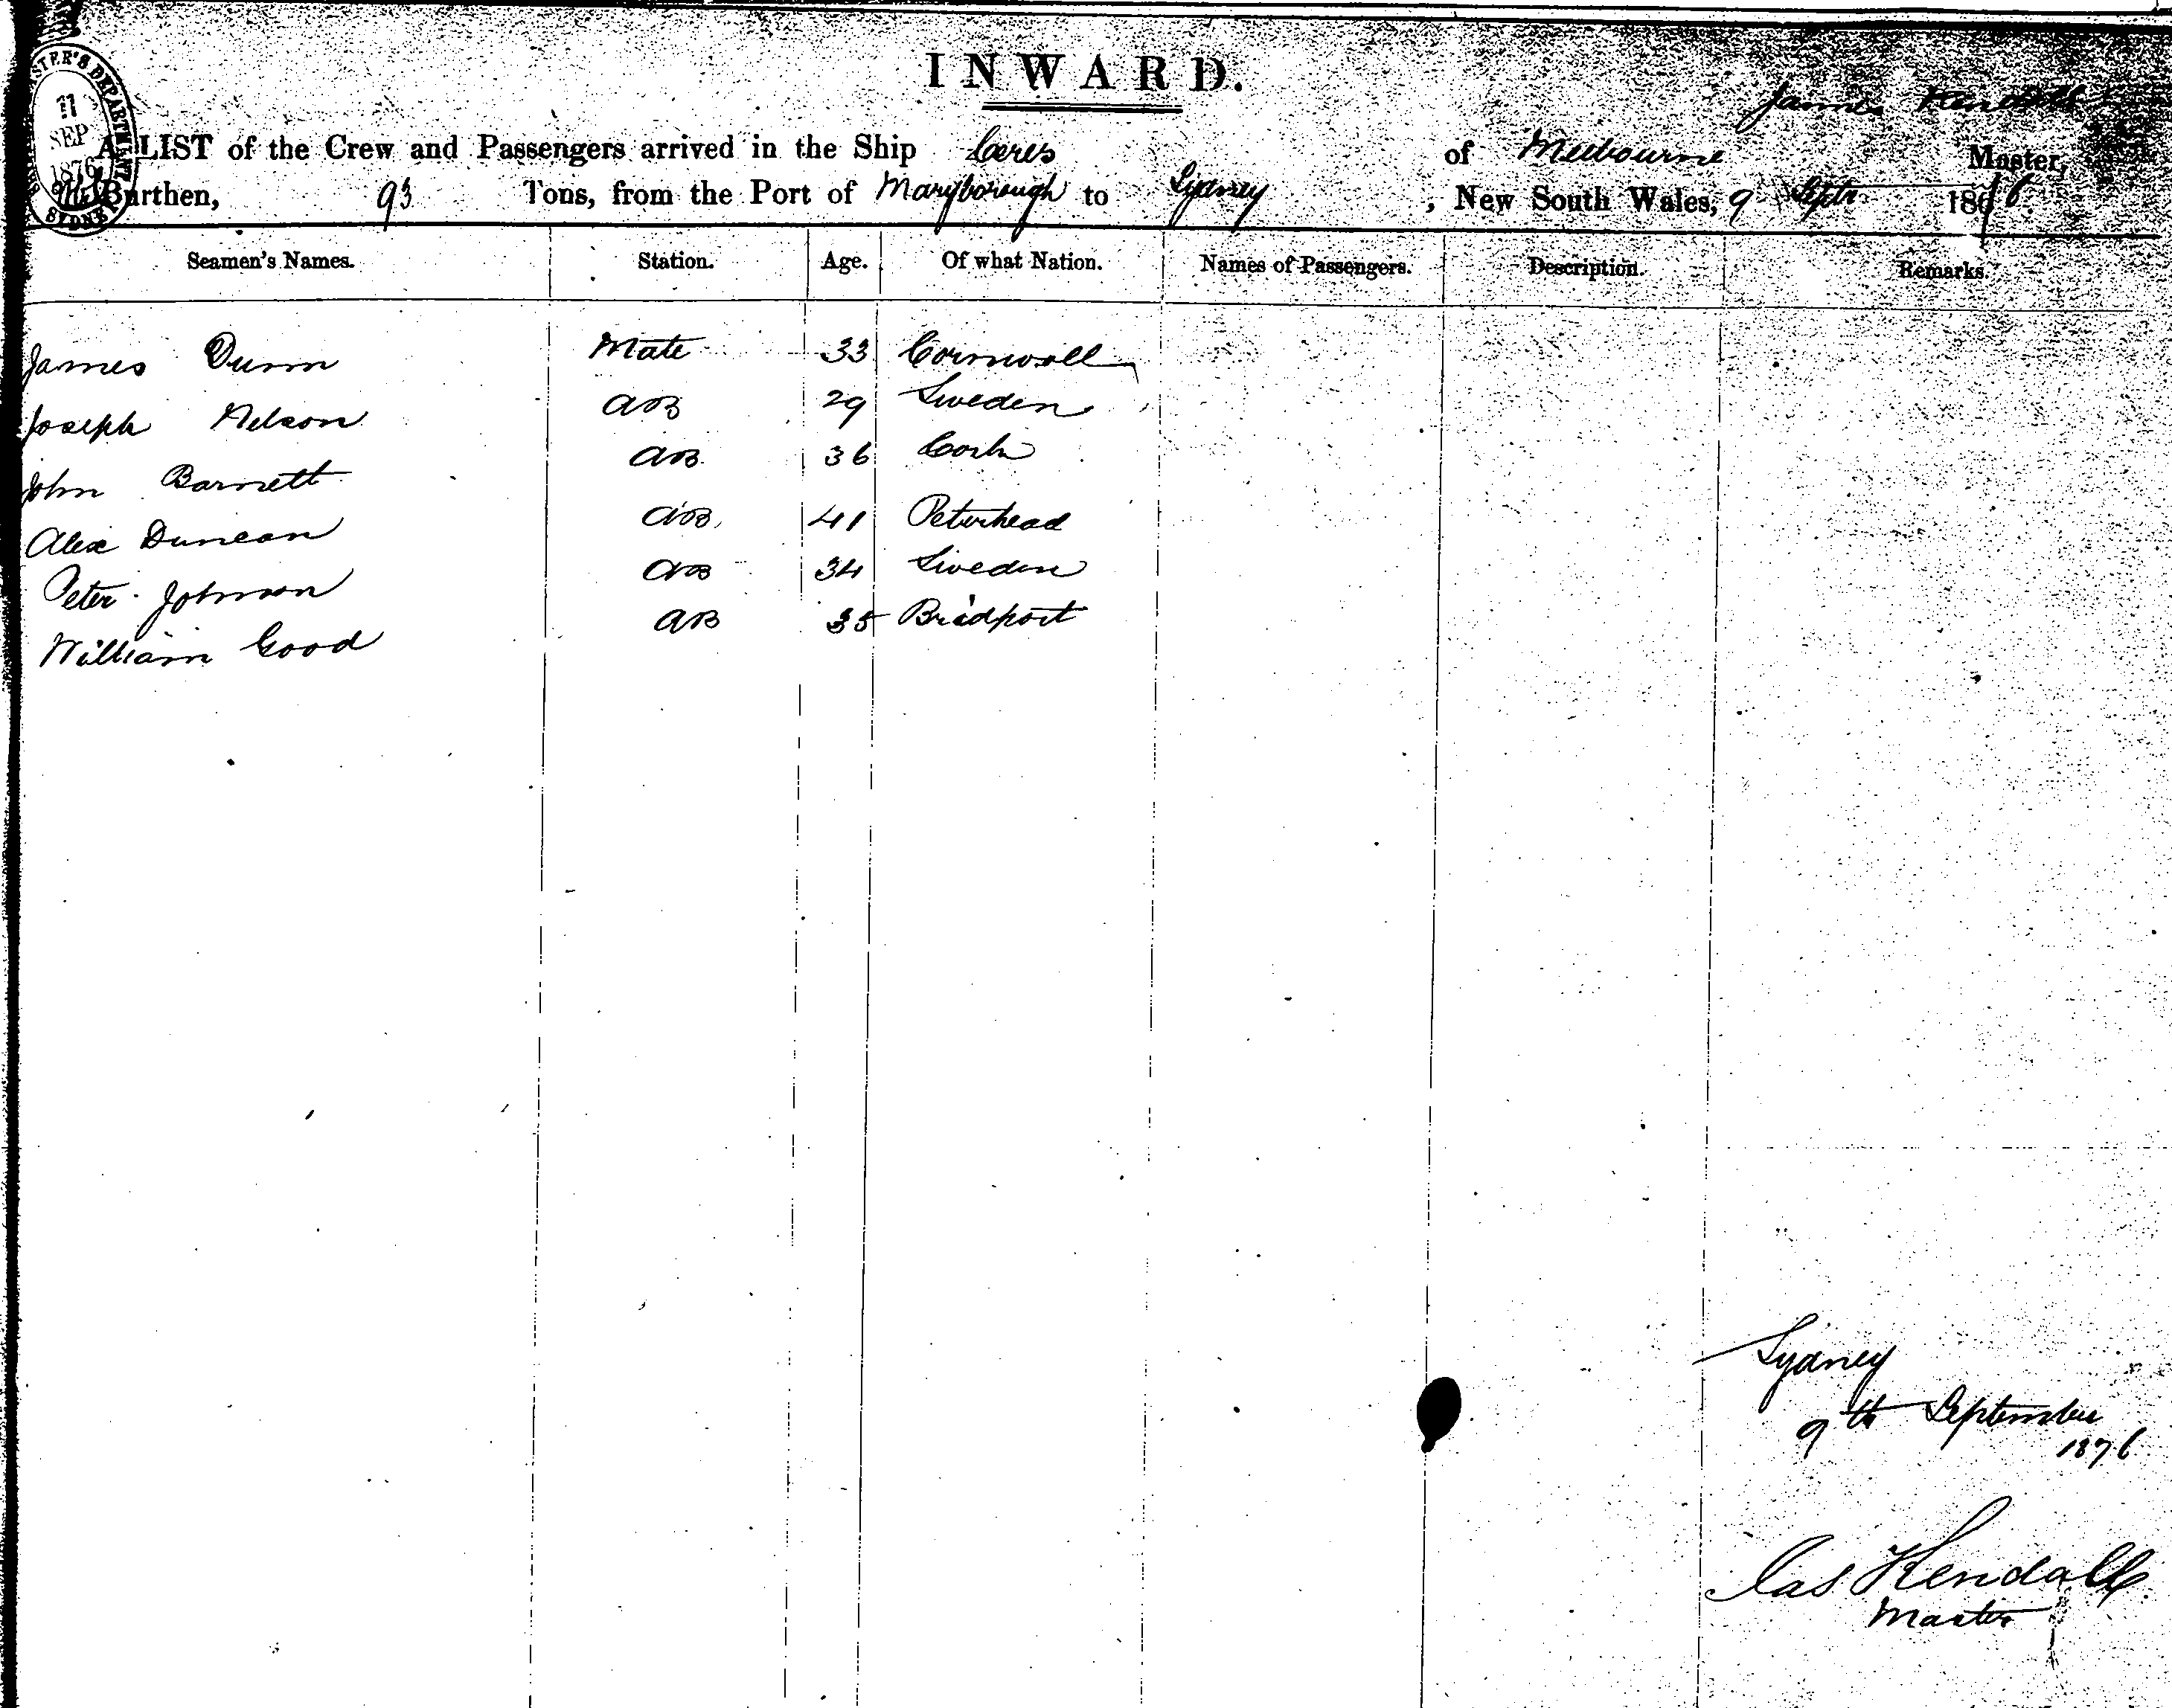 INWARD.
STER'S DEPARTMENT
11
SEP
1876
SYDNEY
James Kendall
A LIST of the Crew and Passengers arrived in the Ship Ceres of Melbourne Master,
Burthen, 93 Tons, from the Port of Maryborough to Sydney, New South Wales, 9 Septr 1876
Seamen's Names. Station. Age. Of what Nation. Names of Passengers. Description. Remarks.
James Dunn Mate 33 Cornwall
Joseph Nelson AB 29 Sweden
John Barnett AB 36 Cork
Alex Duncan AB 41 Peterhead
Peter Johnson AB 34 Sweden
William Good AB 35 Bridport
Sydney
9th September
1876
Jas Kendall
Master